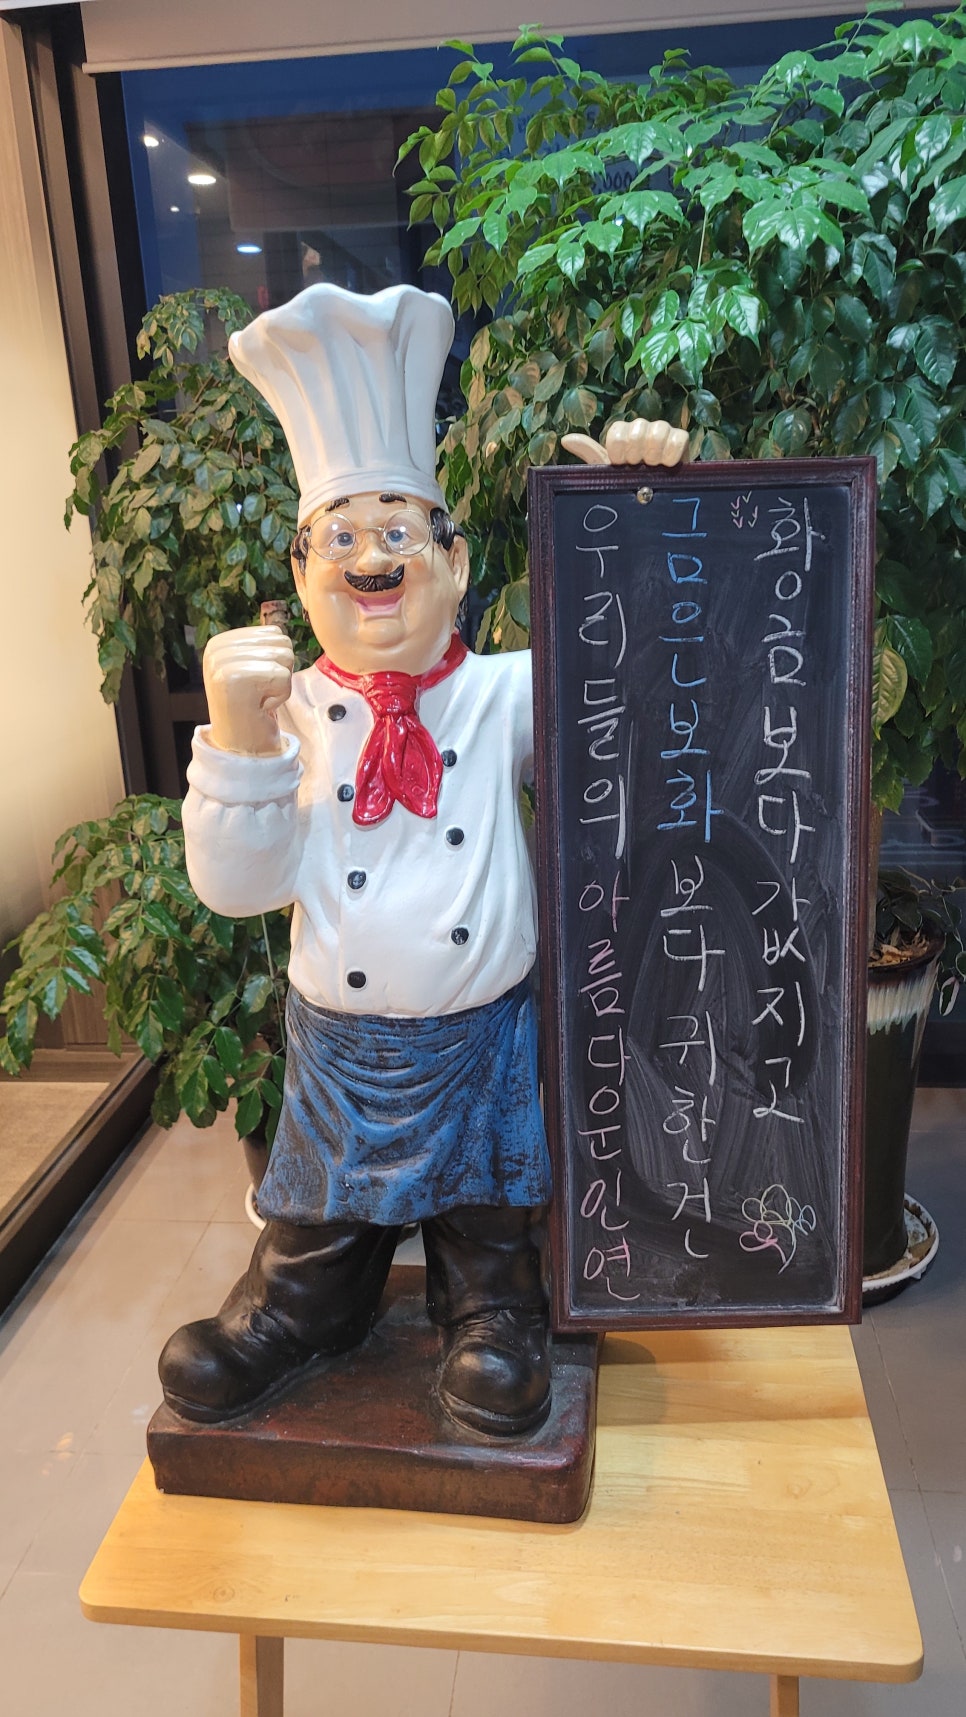 황금보다 값지고
금은보화보다 귀한 건
우리들의 아름다운 인연